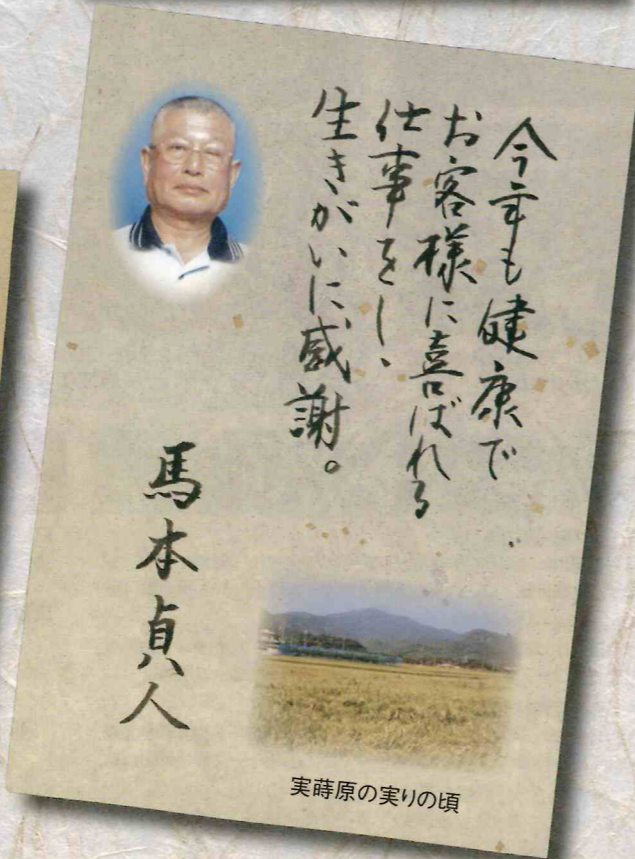 今年も健康で
お客様に喜ばれる
仕事をし、
生きがいに感謝。
馬本貞人
実蒔原の実りの頃